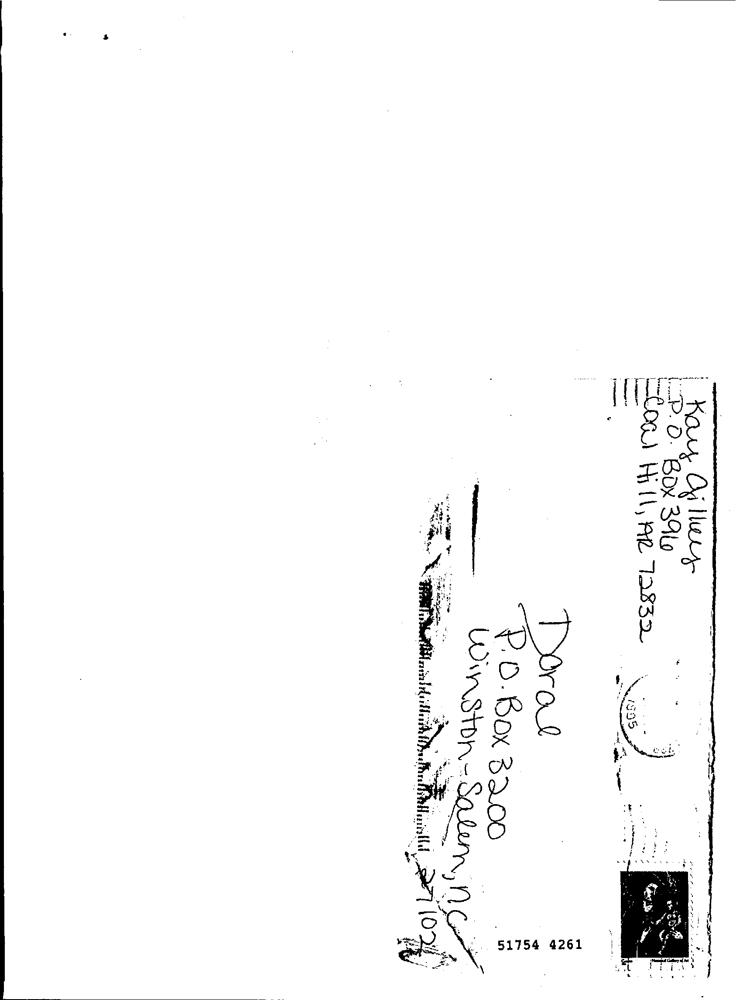 Kay Gilkey
P.O. Box 396
Coal Hill, AR 72832
1995
Doral
P.O. Box 3200
Winston-Salem, NC
27102
51754 4261